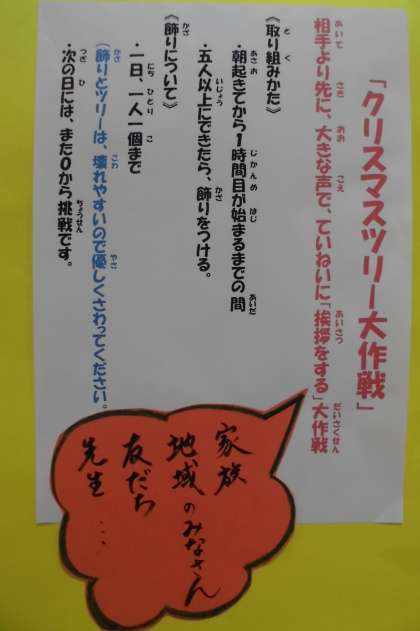 「クリスマスツリー大作戦」
相手より先に、大きな声で、ていねいに「挨拶をする」大作戦
《取り組みかた》
・朝起きてから1時間目が始まるまでの間
・五人以上にできたら、飾りをつける。
《飾りについて》
・一日、一人一個まで
(飾りとツリーは、壊れやすいので優しくさわってください。
・次の日には、また0から挑戦です。
家族
地域のみなさん
友だち
先生…